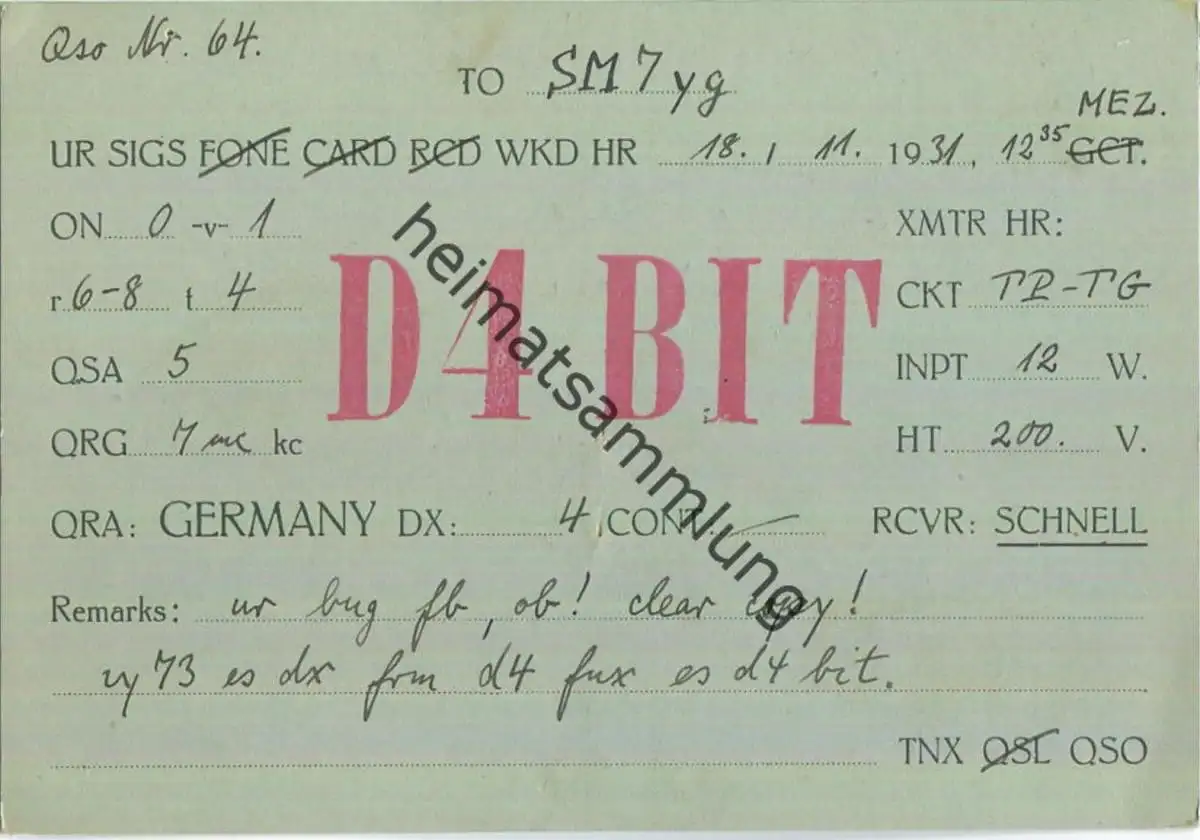 Qso Nr. 64.
TO SM7yg
MEZ.
UR SIGS FONE CARD RCD WKD HR 18. / 11. 1931, 12 35 GCT.
ON 0 -v- 1 XMTR HR:
r 6-8 t 4 CKT TP-TG
QSA 5 INPT 12 W.
QRG 7 mc kc HT 200. V.
D4BIT
QRA: GERMANY DX: 4 CONT. RCVR: SCHNELL
Remarks: ur bug fb, ob! clear copy!
vy 73 es dx frm d4 fux es d4 bit.
TNX QSL QSO
heimatsammlung